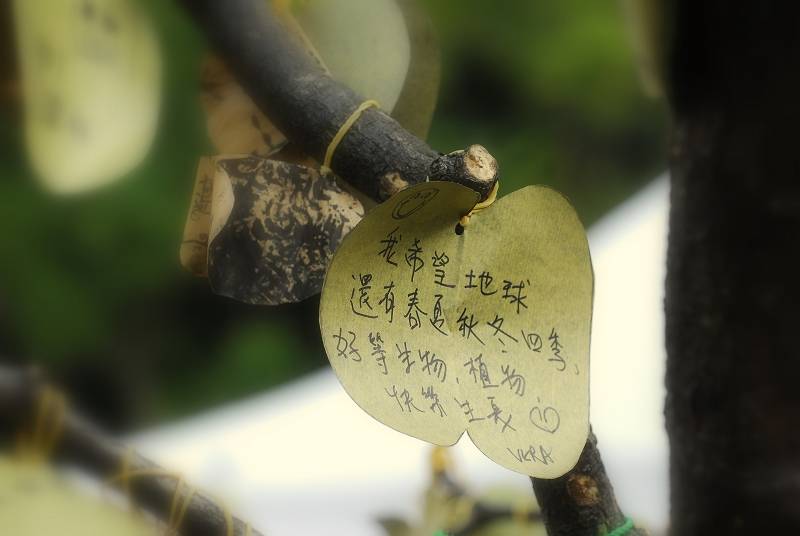 我希望地球
還有春夏秋冬四季,
好等生物、植物
快樂生長
VERA